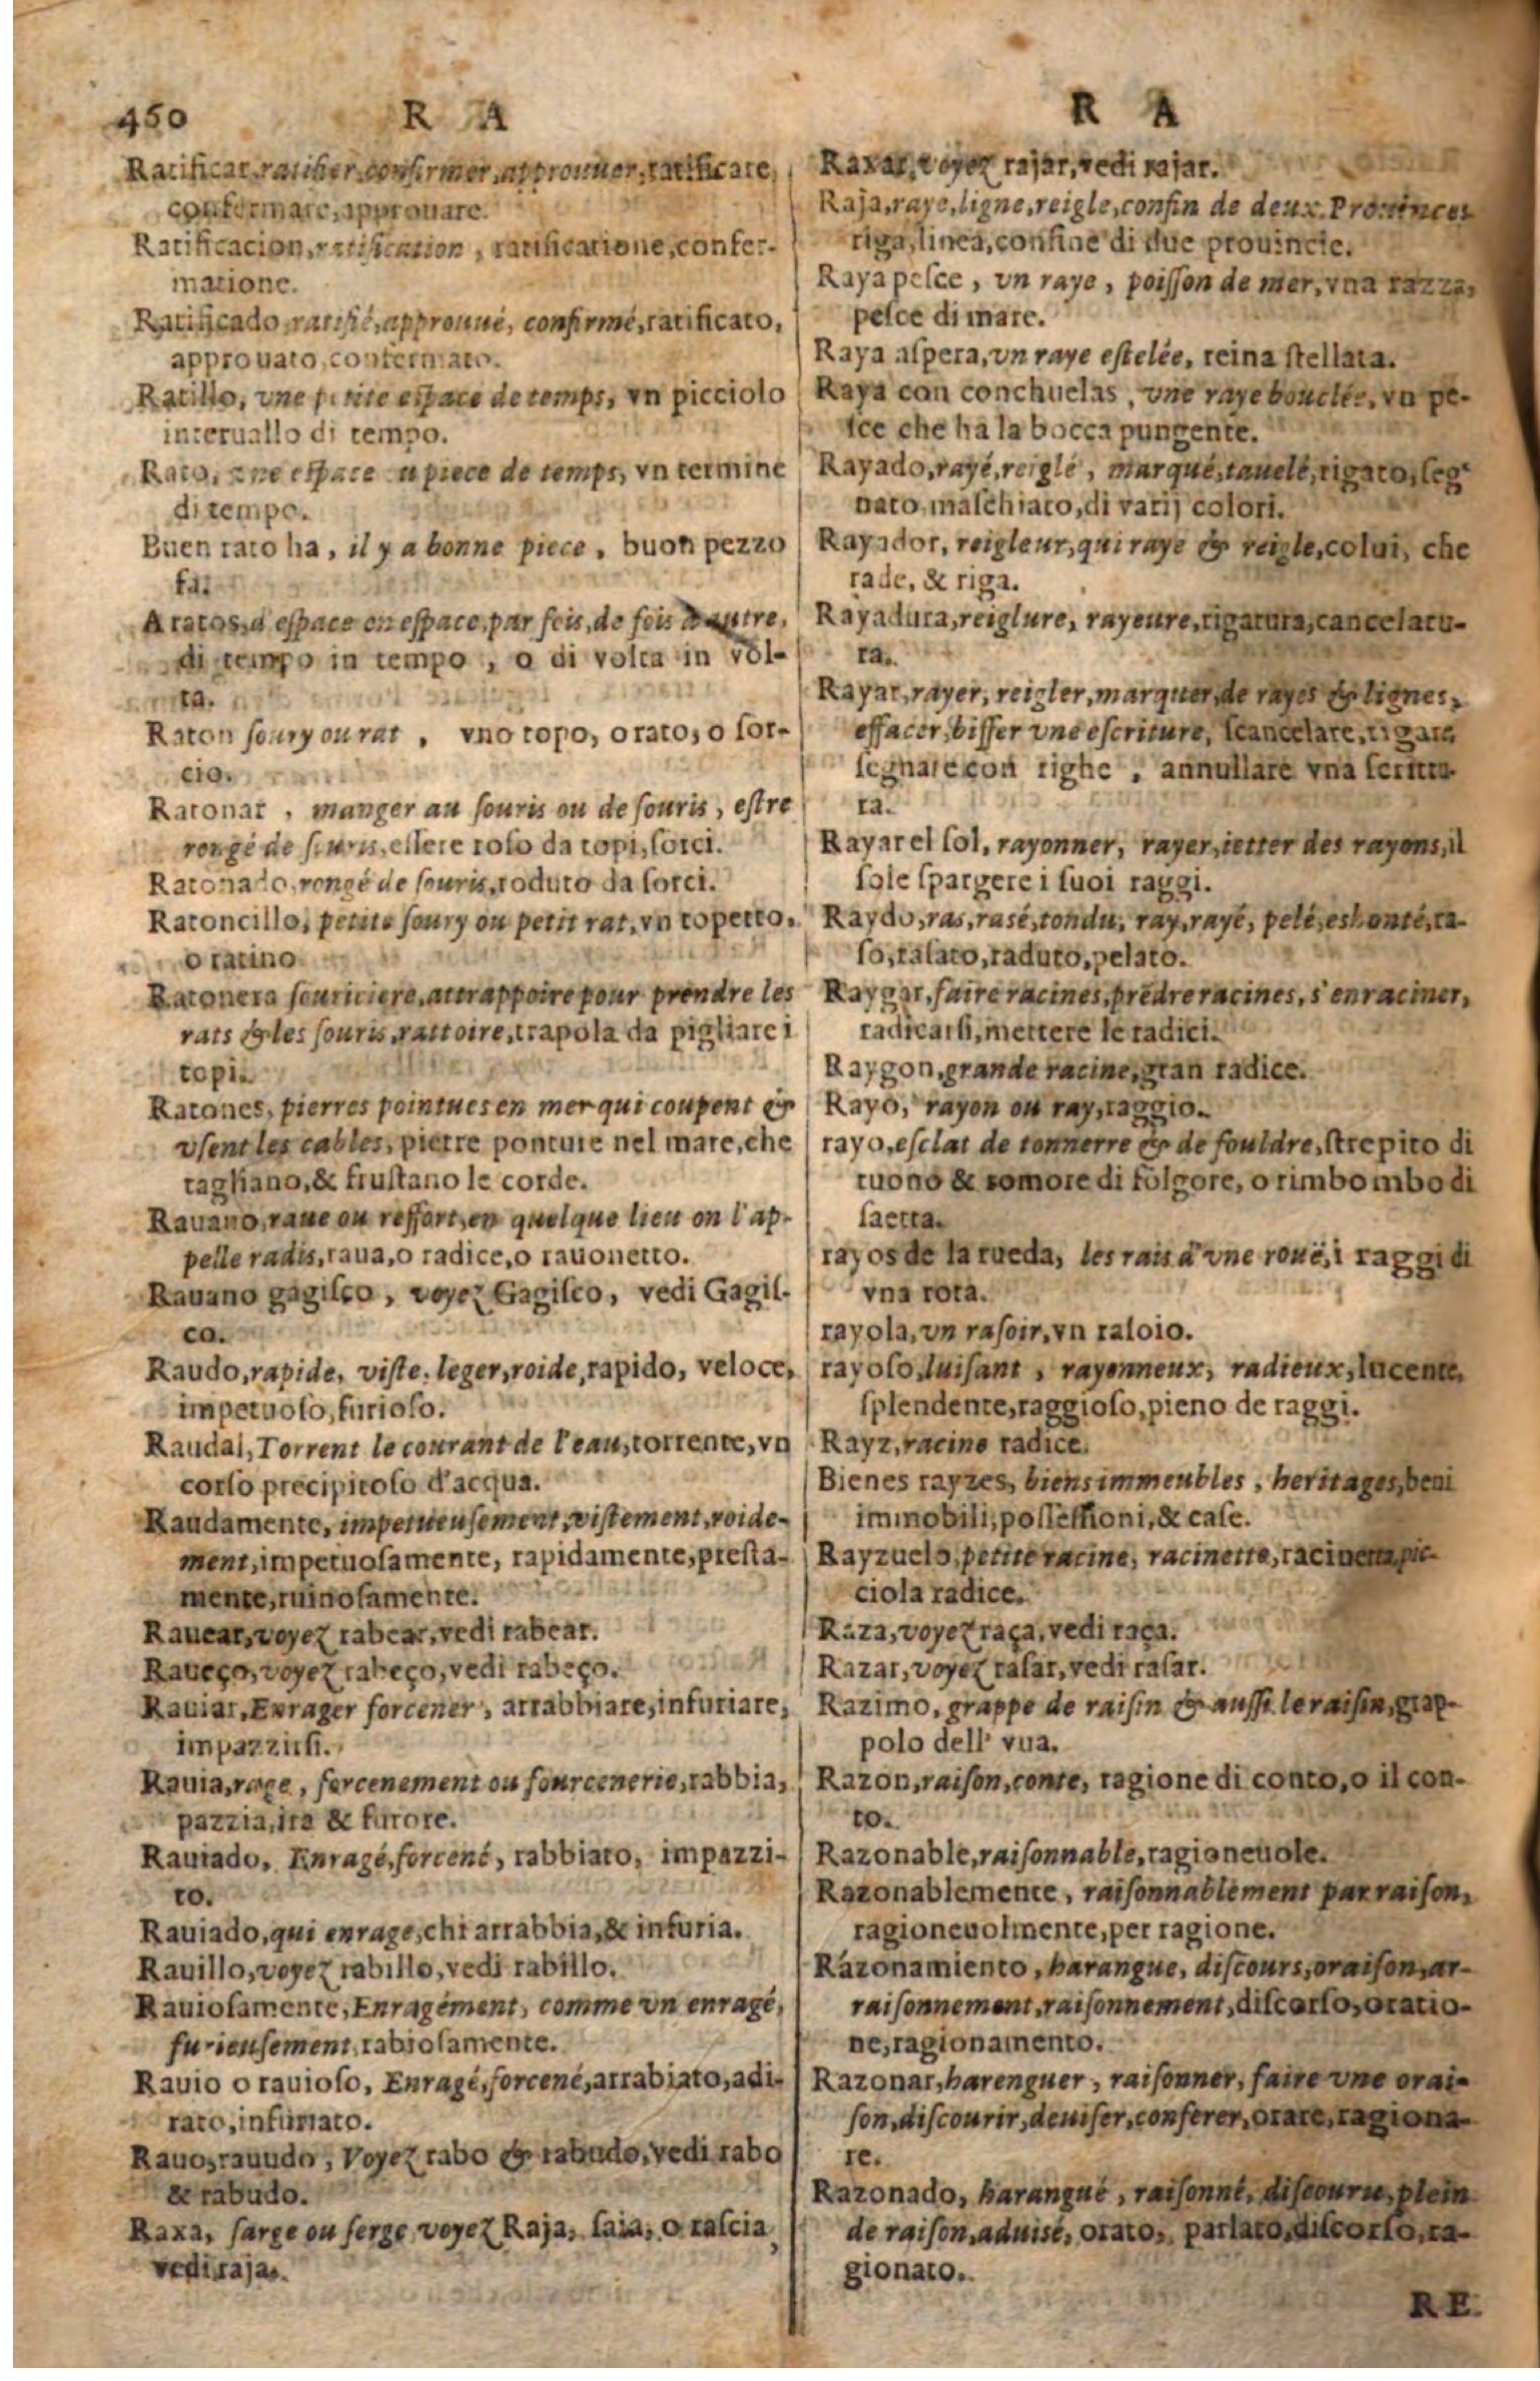 450 R A
Ratificar, ratifier, confirmer, approuuer, ratificare,
confermare, approuare.
Ratificacion, ratification, ratificatione, confer-
matione.
Ratificado, ratifié, approuué, confirmé, ratificato,
approuato, confermato.
Ratillo, vne petite espace de temps, vn picciolo
interuallo di tempo.
Rato, vne espace piece de temps, vn termine
di tempo.
Buen rato ha, il y a bonne piece, buon pezzo
fà.
A ratos, d'espace en espace, par fois, de fois à autre,
di tempo in tempo, o di volta in vol-
ta.
Raton soury ou rat, vno topo, o rato, o sor-
cio.
Ratonar, manger au souris ou de souris, estre
rongé de souris, essere roso da topi, sorci.
Ratonado, rongé de souris, roduto da sorci.
Ratoncillo, petite soury ou petit rat, vn topetto,
o ratino
Ratonera souriciere, attrappoire pour prendre les
rats & les souris, rattoire, trapola da pigliare i
topi.
Ratones, pierres pointues en mer qui coupent &
vsent les cables, pietre pontute nel mare, che
tagliano, & frustano le corde.
Rauano, raue ou reffort, en quelque lieu on l'ap-
pelle radis, raua, o radice, o rauonetto.
Rauano gagisco, voyez Gagisco, vedi Gagis-
co.
Raudo, rapide, viste, leger, roide, rapido, veloce,
impetuoso, furioso.
Raudal, Torrent le courant de l'eau, torrente, vn
corso precipitoso d'acqua.
Raudamente, impetueusement, vistement, roide-
ment, impetuosamente, rapidamente, presta-
mente, ruinosamente.
Rauear, voyez rabear, vedi rabear.
Raueço, voyez rabeço, vedi rabeço.
Rauiar, Enrager forcener, arrabbiare, infuriare,
impazzirsi.
Rauia, rage, forcenement ou fourcenerie, rabbia,
pazzia, ira & furore.
Rauiado, Enragé, forcené, rabbiato, impazzi-
to.
Rauiado, qui enrage, chi arrabbia, & infuria.
Rauillo, voyez rabillo, vedi rabillo.
Rauiosamente, Enragément, comme vn enragé,
furieusement, rabiosamente.
Rauio o rauioso, Enragé, forcené, arrabiato, adi-
rato, infuriato.
Rauo, rauudo, Voyez rabo & rabudo, vedi rabo
& rabudo.
Raxa, sarge ou serge voyez Raja, saia, o rascia,
vedi raja.
R A
Raxar, voyez rajar, vedi rajar.
Raja, raye, ligne, reigle, confin de deux Prouinces
riga, linea, confine di due prouincie.
Raya pesce, vn raye, poisson de mer, vna razza,
pesce di mare.
Raya aspera, vn raye estelée, reina stellata.
Raya con conchuelas, vne raye bouclée, vn pe-
sce che ha la bocca pungente.
Rayado, rayé, reiglé, marqué, tauelé, rigato, seg-
nato, maschiato, di varij colori.
Rayador, reigleur, qui raye & reigle, colui, che
rade, & riga.
Rayadura, reiglure, rayeure, rigatura, cancelatu-
ra.
Rayar, rayer, reigler, marquer, de rayes & lignes,
effacer, biffer vne escriture, scancelare, rigare
segnare con righe, annullare vna scrittu-
ra.
Rayar el sol, rayonner, rayer, ietter des rayons, il
sole spargere i suoi raggi.
Raydo, ras, rasé, tondu, ray, rayé, pelé, eshonté, ra-
so, rasato, raduto, pelato.
Raygar, faire racines, prẽdre racines, s'enraciner,
radicarsi, mettere le radici.
Raygon, grande racine, gran radice.
Rayo, rayon ou ray, raggio.
rayo, esclat de tonnerre & de fouldre, strepito di
tuono & romore di folgore, o rimbombo di
saetta.
rayos de la rueda, les rais d'vne rouë, i raggi di
vna rota.
rayola, vn rasoir, vn rasoio.
rayoso, luisant, rayonneux, radieux, lucente,
splendente, raggioso, pieno de raggi.
Rayz, racine radice.
Bienes rayzes, biens immeubles, heritages, beni
immobili, possessioni, & case.
Rayzuela, petite racine, racinette, racinetta, pic-
ciola radice.
Raza, voyez raça, vedi raça.
Razar, voyez rasar, vedi rasar.
Razimo, grappe de raisin & aussi le raisin, grap-
polo dell' vua.
Razon, raison, conte, ragione di conto, o il con-
to.
Razonable, raisonnable, ragioneuole.
Razonablemente, raisonnablement par raison,
ragioneuolmente, per ragione.
Razonamiento, harangue, discours, oraison, ar-
raisonnement, raisonnement, discorso, oratio-
ne, ragionamento.
Razonar, harenguer, raisonner, faire vne orai-
son, discourir, deuiser, conferer, orare, ragiona-
re.
Razonado, harangué, raisonné, discouru, plein
de raison, aduisé, orato, parlato, discorso, ra-
gionato.
RE.